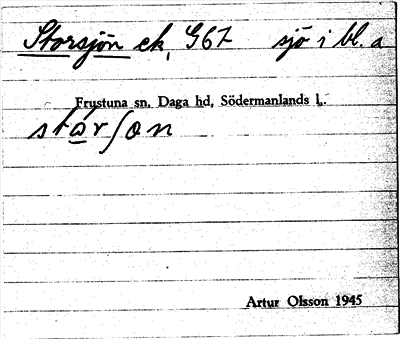 Storsjön ek, G67 sjö i bl. a
Frustuna sn. Daga hd, Södermanlands l.
Artur Olsson 1945